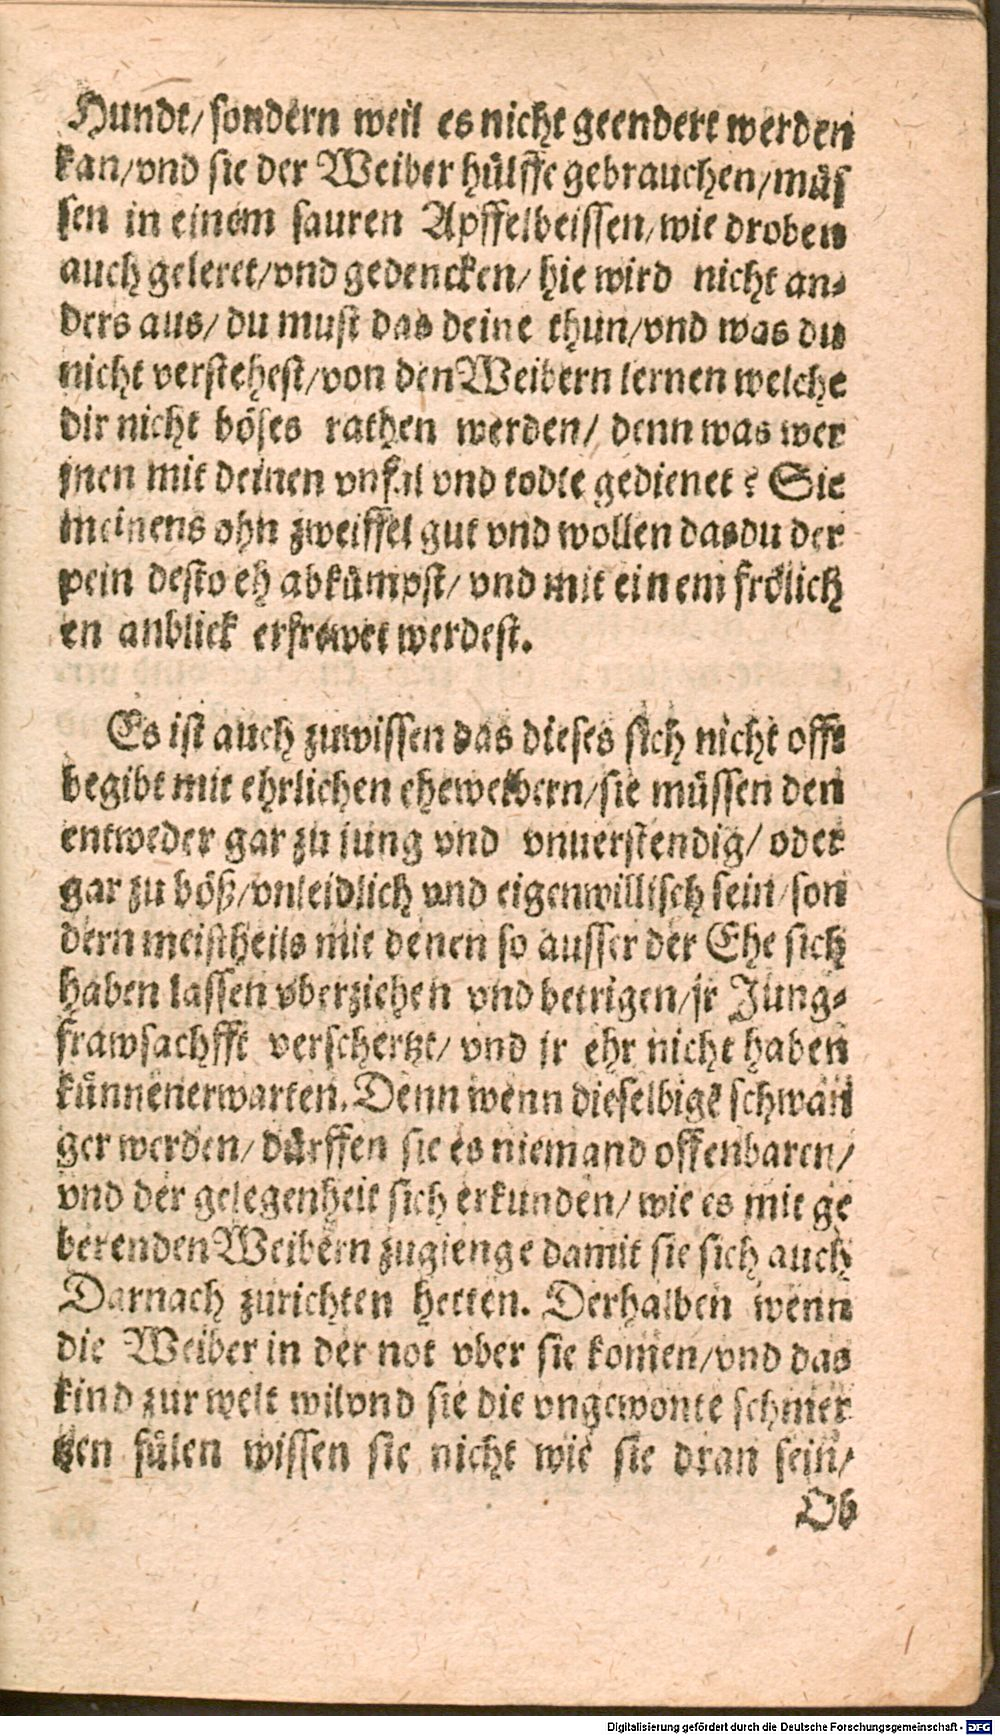 Hundt/ sondern weil es nicht geendert werden
kan/vnd sie der Weiber hülffe gebrauchen/müs
sen in einem sauren Apffelbeissen/wie droben
auch geleret/vnd gedencken/ hie wird nicht an-
ders aus/ du must das deine thun/vnd was du
nicht verstehest/von den Weibern lernen welche
dir nicht böses rathen werden/ denn was wer
jnen mit deinen vnfal vnd todte gedienet? Sie
meinens ohn zweiffel gut vnd wollen das du der
pein desto eh abkümpst/ vnd mit einem frölich
en anblick erfrewet werdest.
Es ist auch zuwissen das dieses sich nicht offt
begibt mit ehrlichen eheweibern/sie müssen den
entweder gar zu jung vnd vnuerstendig/ oder
gar zu böß/vnleidlich vnd eigenwillisch sein/son
dern meistheils mit denen so ausser der Ehe sich
haben lassen vberziehen vnd betrigen/jr Jung-
frawsachfft verschertzt/ vnd jr ehr nicht haben
künnenerwarten. Denn wenn dieselbigē schwan
ger werden/ dürffen sie es niemand offenbaren/
vnd der gelegenheit sich erkunden/ wie es mit ge
berenden Weibern zugienge damit sie sich auch
Darnach zurichten hetten. Derhalben wenn
die Weiber in der not vber sie komen/vnd das
kind zur welt wilvnd sie die vngewonte schmer
tzen fülen wissen sie nicht wie sie dran sein/
Ob
Digitalisierung gefördert durch die Deutsche Forschungsgemeinschaft - DFG